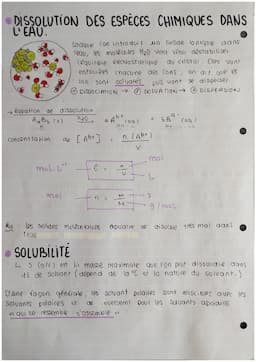 DISSOLUTION DES ESPÈCES CHIMIQUES DANS
L'EAU.
lorsque l'on introduit un solide ionique dans
l'eau, les molécules H2O vont venir déstabiliser
l'équilibre électrostatique du cristal. Elles vont
entourer chacune des ions, on dit que les
ions sont solvatés puis vont se disperser
① DISSOCIATION → ② SOLVATION → ③ DISPERSION
→ Équation de dissolution
concentration de [Aᵇ⁺] = n(Aᵇ⁺)
V
mol·L⁻¹
C = n
V
mol
L
mol
n = m
M
g
g/mol
Rq les solides moléculaires apolaires se dissolve très mal dans
l'eau
SOLUBILITÉ
↳ S (g/L) est la masse maximale que l'on peut dissoudre dans
1L de solvant (dépend de la °C et la nature du solvant.)
D'une façon générale, les solvant polaires sont miscibles avec les
solvants polaires et de même pour les solvants apolaires
"qui se ressemble s'assemble"